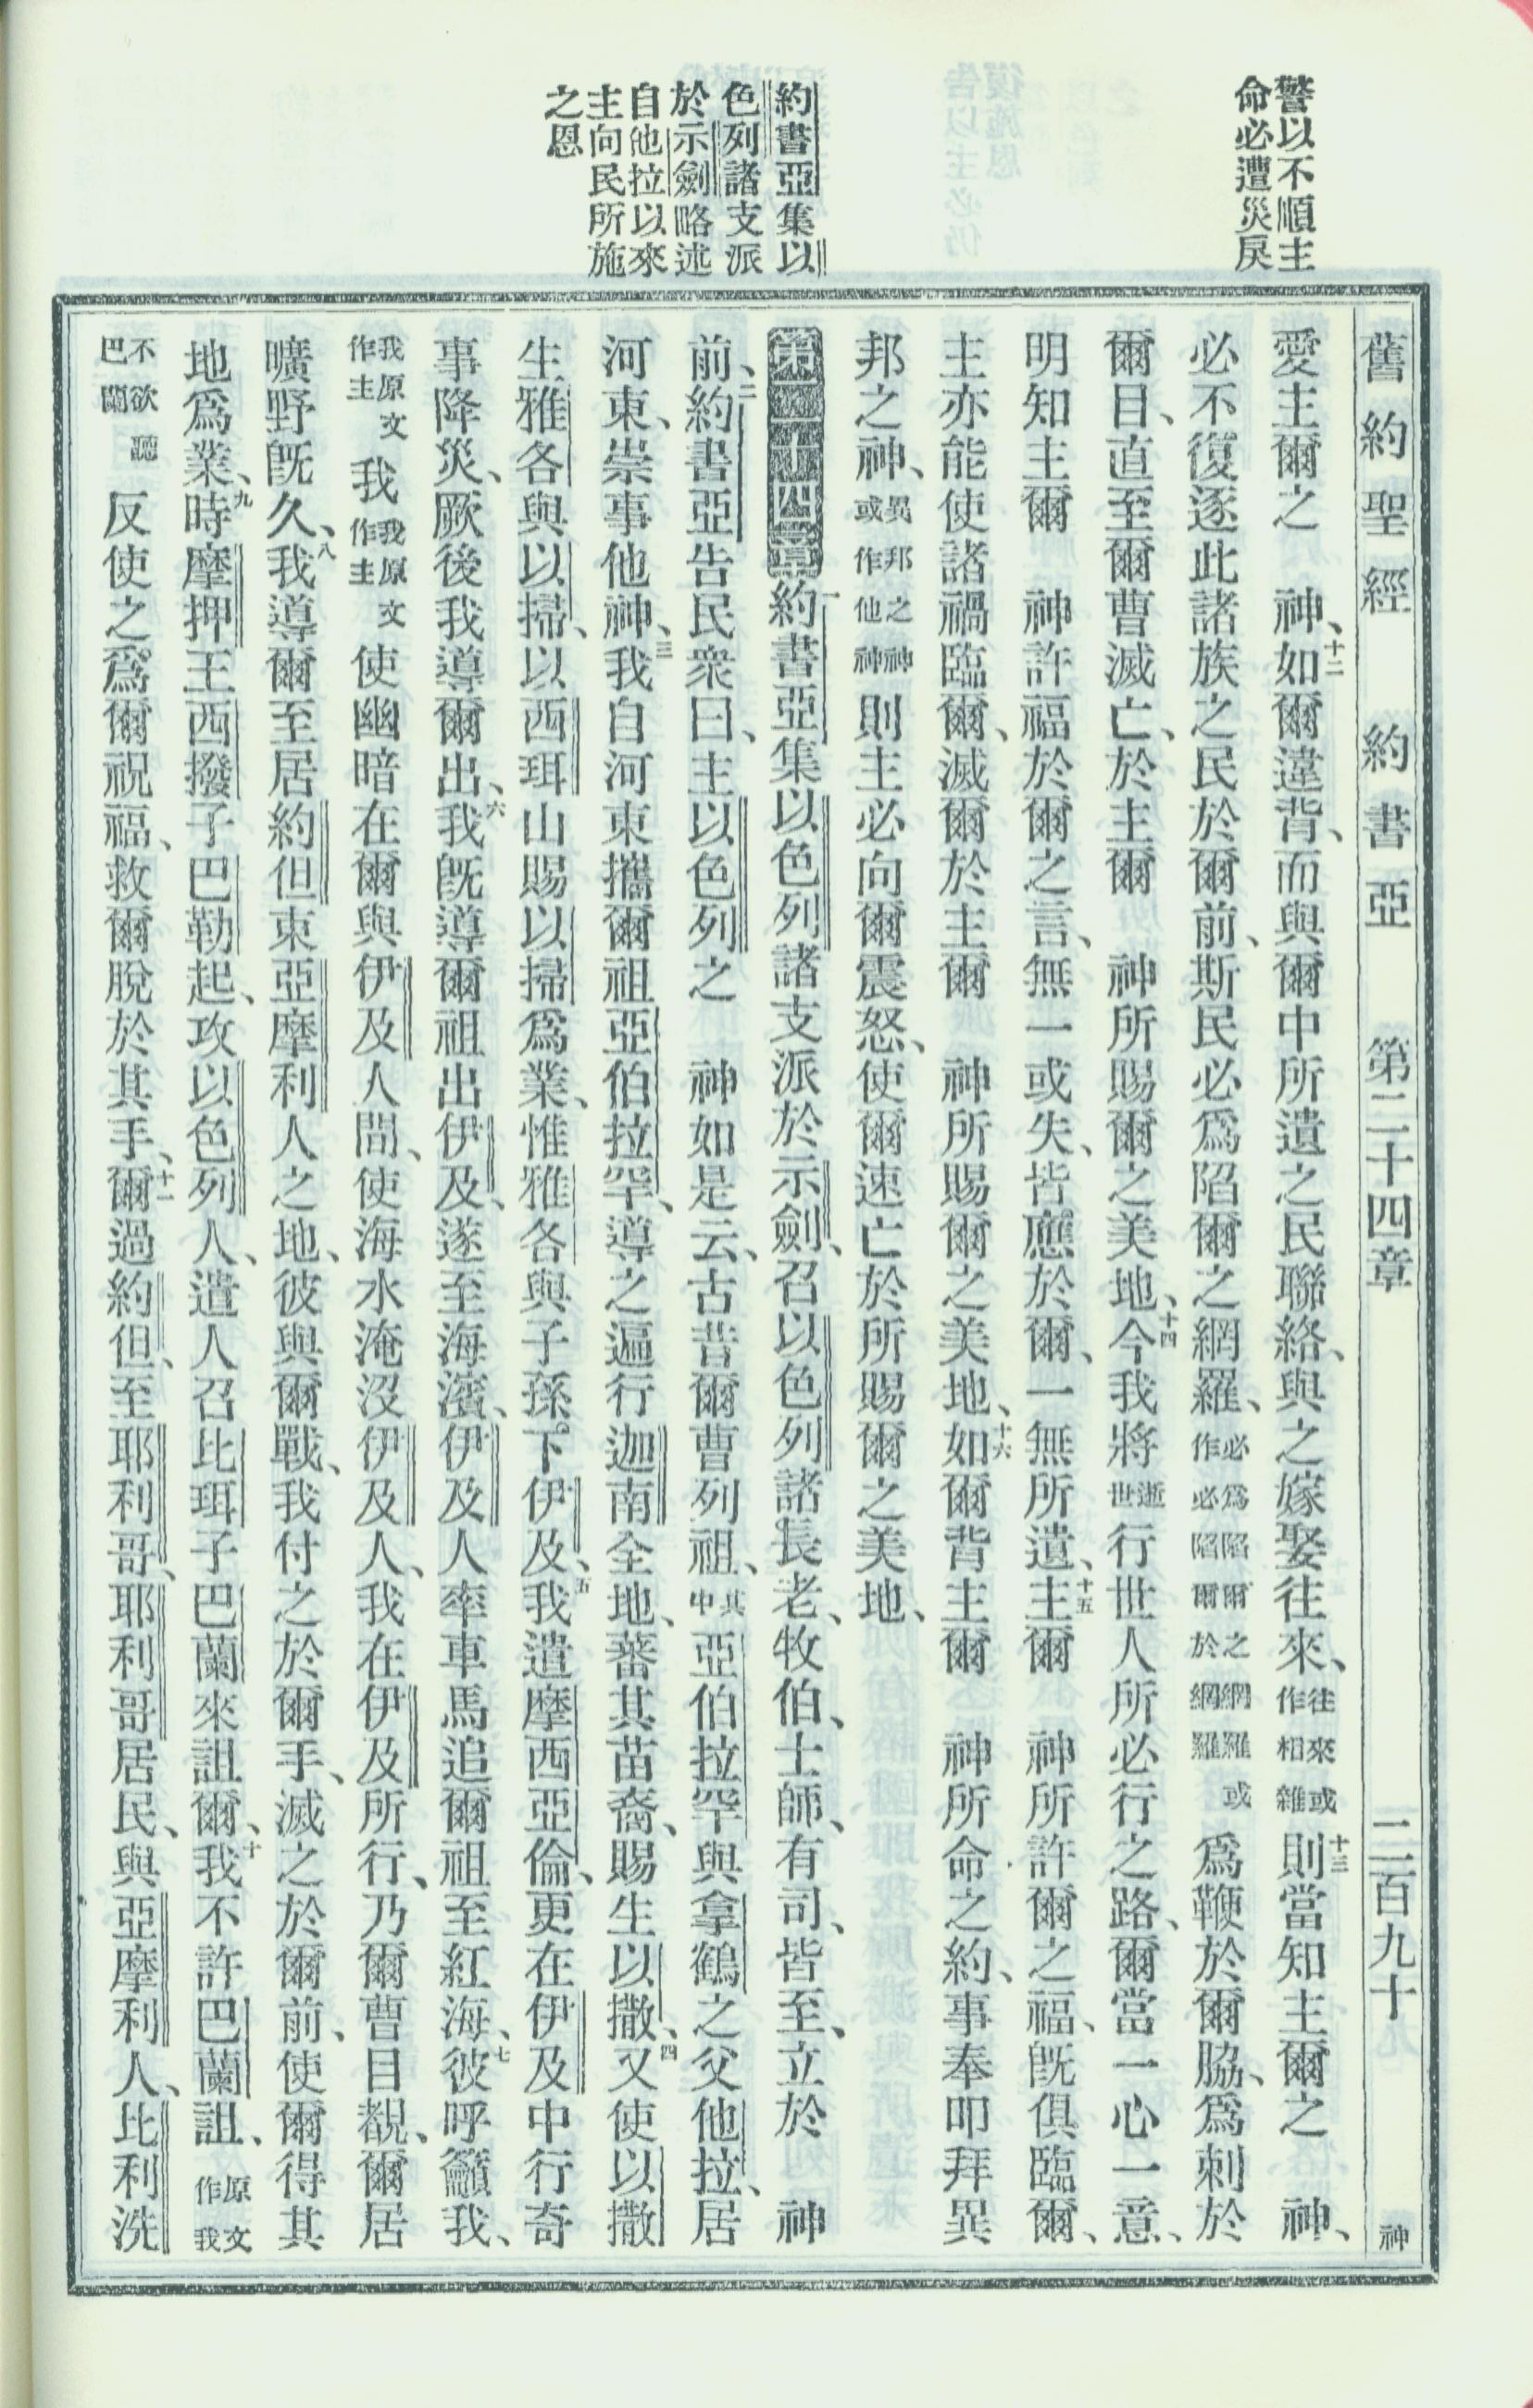 警以不順主
命必遭災戾
約書亞集以
色列諸支派
於示劍略述
自他拉以來
主向民所施
之恩
舊約聖經 約書亞 第二十四章 二百九十 神
愛主爾之 神、十二如爾違背、而與爾中所遺之民聯絡、與之嫁娶往來、往來或作相雜十三則當知主爾之 神、
必不復逐此諸族之民於爾前、斯民必爲陷爾之網羅、必爲陷爾之網羅或作必陷爾於網羅爲鞭於爾脇、爲刺於
爾目、直至爾曹滅亡、於主爾 神所賜爾之美地、十四今我將逝世行世人所必行之路、爾當一心一意、
明知主爾 神許福於爾之言、無一或失、皆應於爾、一無所遺、十五主爾 神所許爾之福、旣俱臨爾、
主亦能使諸禍臨爾、滅爾於主爾 神所賜爾之美地、十六如爾背主爾 神所命之約、事奉叩拜異
邦之神、異邦之神或作他神則主必向爾震怒、使爾速亡於所賜爾之美地、
第二十四章一約書亞集以色列諸支派於示劍、召以色列諸長老、牧伯、士師、有司、皆至、立於 神
前、二約書亞告民衆曰、主以色列之 神如是云、古昔爾曹列祖、其中亞伯拉罕與拿鶴之父他拉、居
河東、崇事他神、三我自河東攜爾祖亞伯拉罕、導之遍行迦南全地、蕃其苗裔、賜生以撒、四又使以撒
生雅各與以掃、以西珥山賜以掃爲業、惟雅各與子孫下伊及、五我遣摩西亞倫、更在伊及中行奇
事降災、厥後我導爾出、六我旣導爾祖出伊及、遂至海濱、伊及人率車馬追爾祖至紅海、七彼呼籲我、
我原文作主我我原文作主使幽暗在爾與伊及人間、使海水淹沒伊及人、我在伊及所行、乃爾曹目覩、爾居
曠野旣久、八我導爾至居約但東亞摩利人之地、彼與爾戰、我付之於爾手、滅之於爾前、使爾得其
地爲業、九時摩押王西撥子巴勒起、攻以色列人、遣人召比珥子巴蘭來詛爾、十我不許巴蘭詛、原文作我
不欲聽巴蘭反使之爲爾祝福、救爾脫於其手、十一爾過約但、至耶利哥、耶利哥居民、與亞摩利人、比利洗